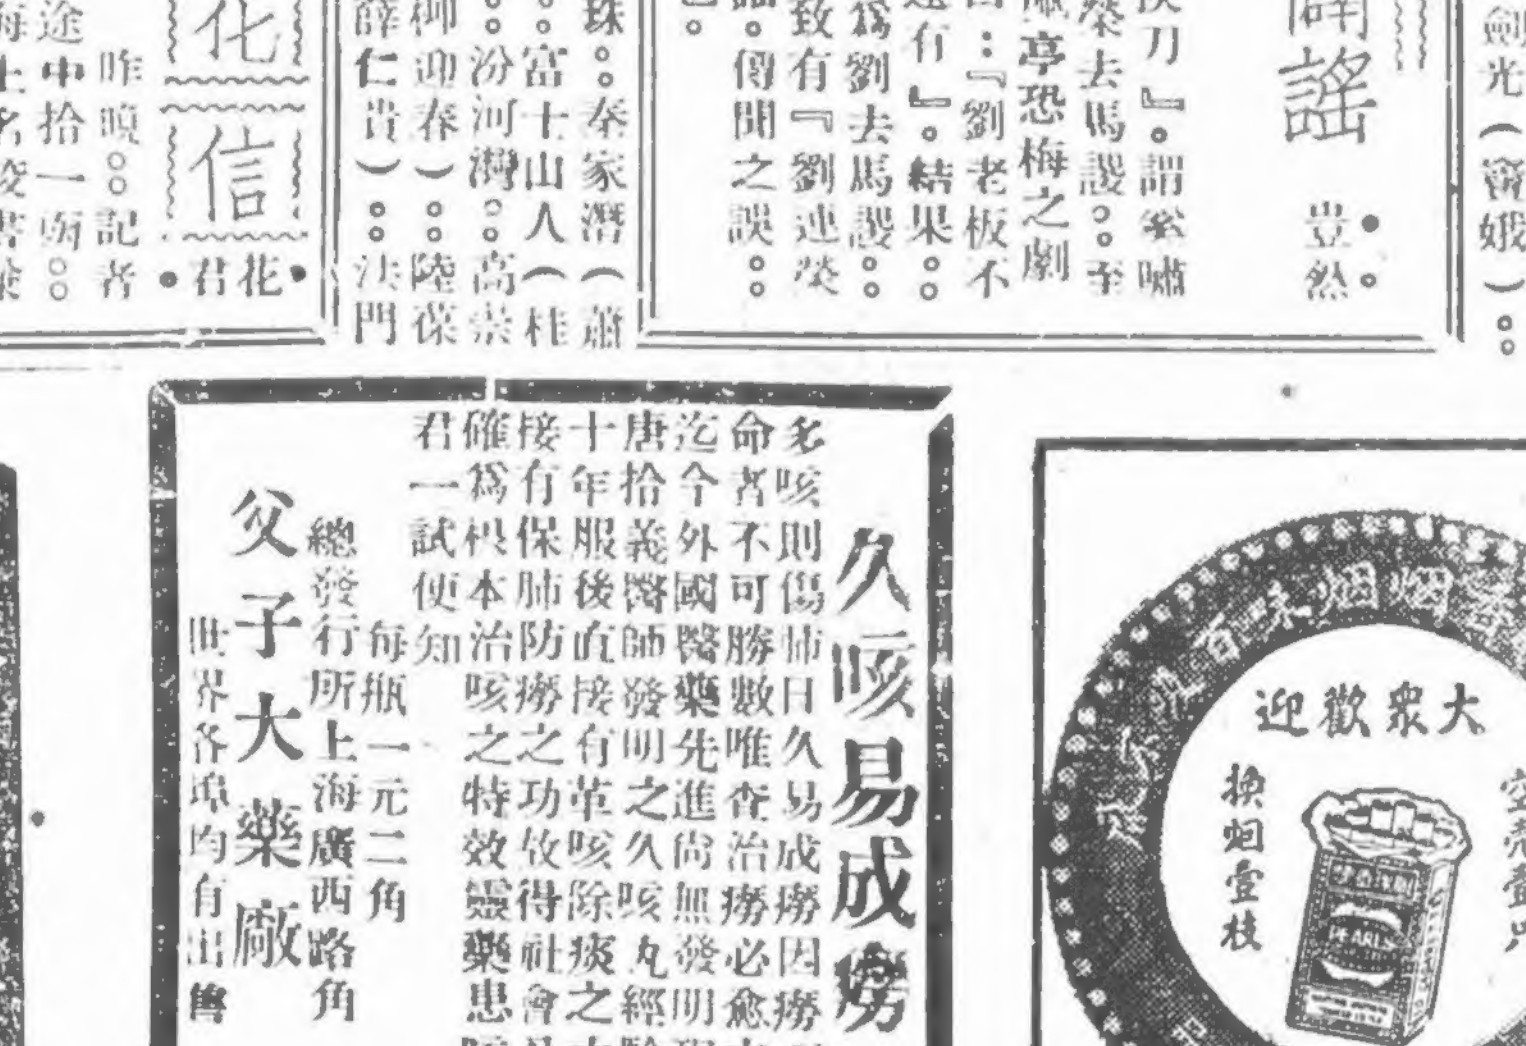 劍光(竇娥)。。
闢謠
豈然
刀』。謂叅嘯
榮去馬謖。。至
亭恐梅之劇
:『劉老板不
有』。結果。。
爲劉去馬謖。。
致有『劉連榮
。傳聞之誤。。
珠。。秦家潛(蕭
。。富士山人(桂
。。汾河灣。。高崇
柳迎春)。。陸葆
薛仁貴)。。法門
化信
花君
昨晚。。記者
途中拾一函。。
海上名
久咳易成癆
多咳則傷肺日久易成癆因癆
命者不可勝數唯查治癆必愈
迄今外國醫藥先進尙無發明
唐拾義醫師發明之久咳丸經
十年服後直接有革咳除痰之
接有保肺防癆之功故得社會
確爲根本治咳之特效靈藥患
君一試便知
每瓶一元二角
總發行所上海廣西路角
父子大藥廠
世界各埠均有出售
百味烟烟
大衆歡迎
空壳壹只
換烟壹枝
PEARL